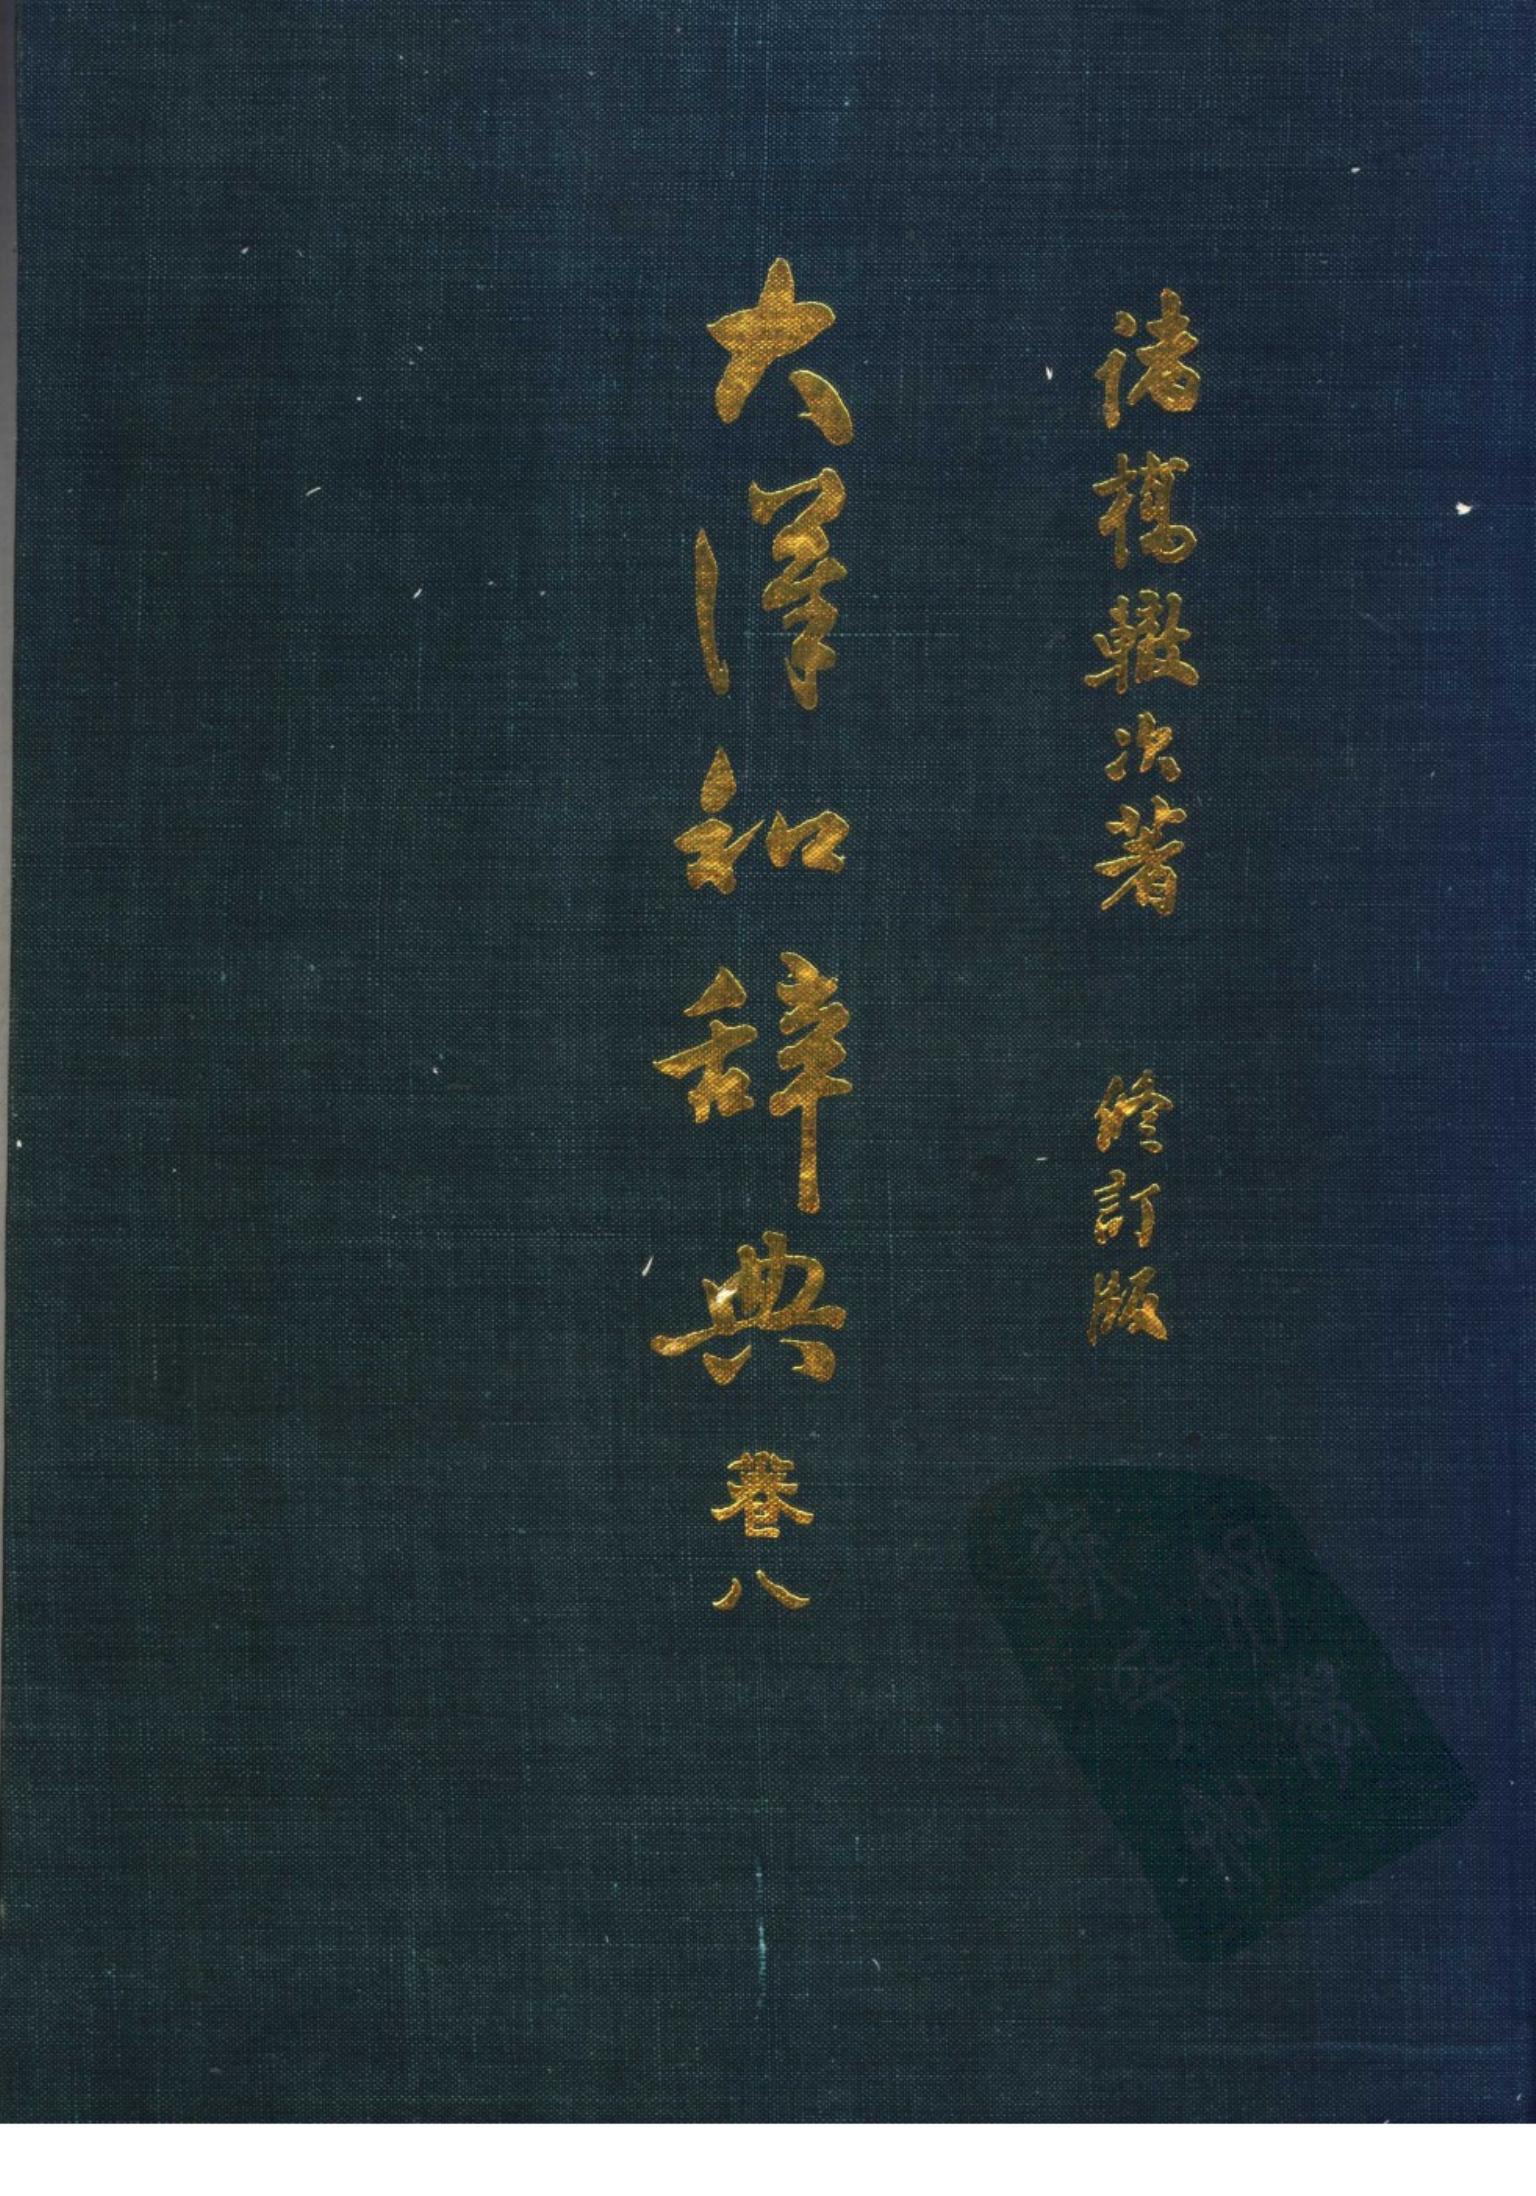 諸橋轍次著 修訂版
大漢和辞典 巻八